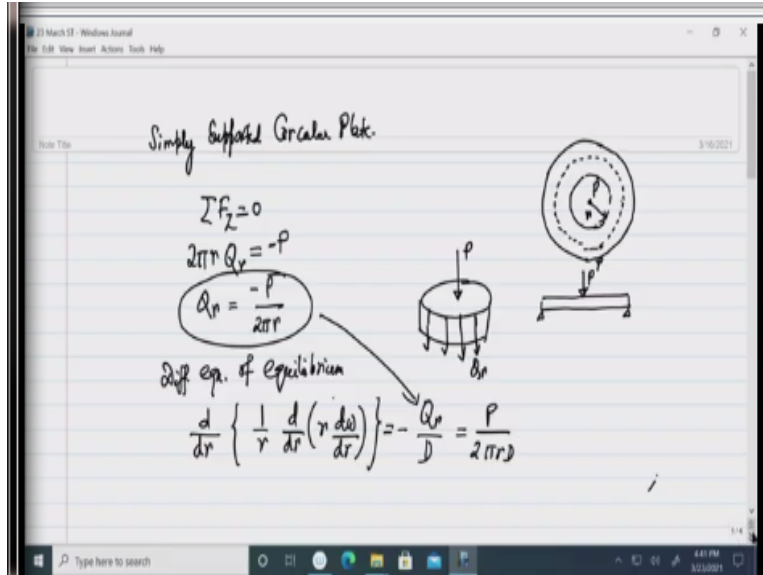 23 March ST - Windows Journal
File Edit View Insert Actions Tools Help
Note Title
3/16/2021
Simply Supported Circular Plate.
ΣF_z = 0
2πr Q_r = -P
Q_r = -P / 2πr
Diff eqn. of equilibrium
d/dr { 1/r d/dr ( r dω/dr ) } = - Q_r/D = P / 2πrD
P
r
P
P
Q_r
1/4
Type here to search
4:41 PM
3/23/2021